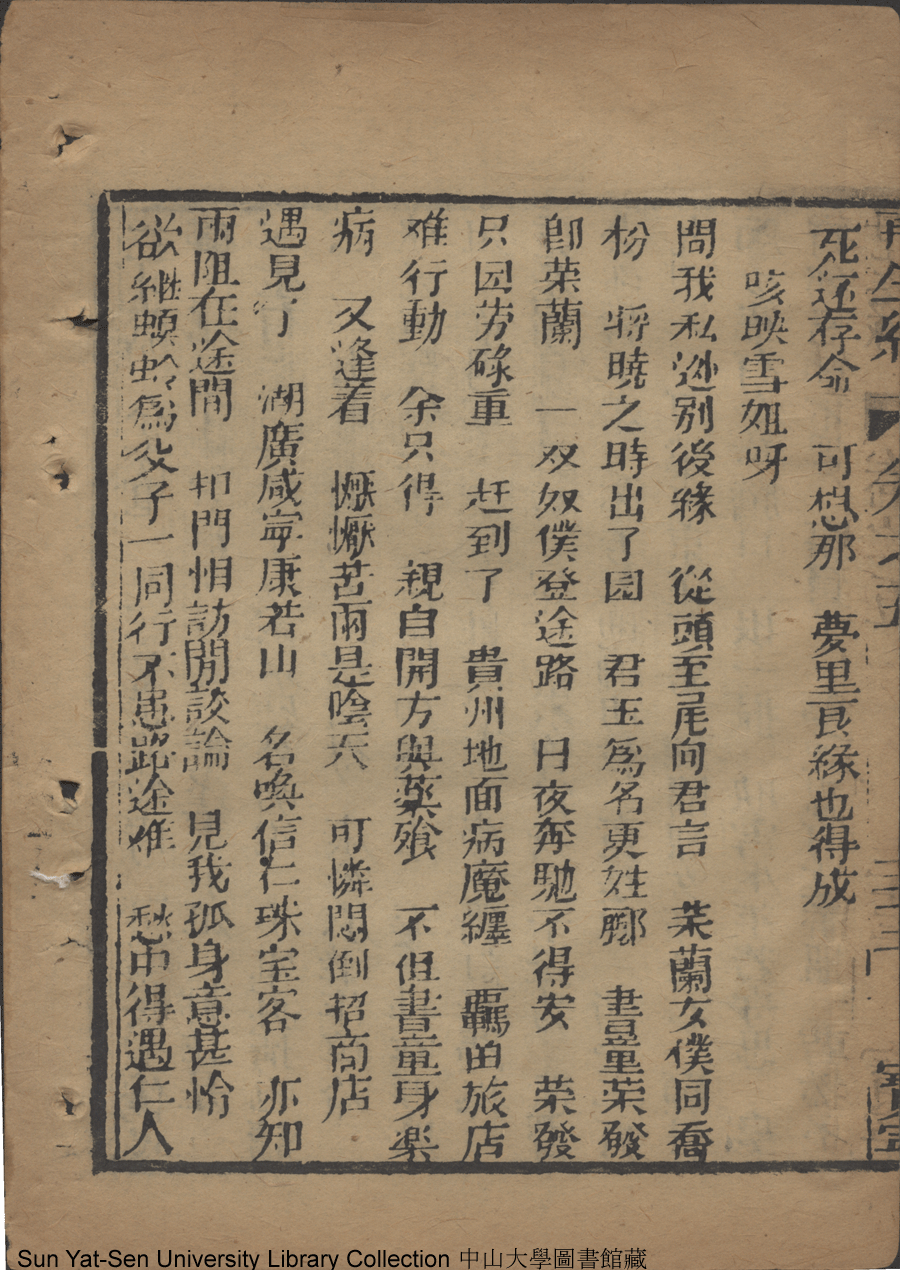 再生緣 卷之五
死còn存命 可想那 夢里良緣也得成
咳映雪姐呀
問我私逃别後緣 從頭至尾向君言 荣蘭女僕同喬
扮 將曉之時出了园 君玉為名更姓酈 書童荣發
即荣蘭 一双奴僕登途路 日夜奔馳不得安 荣發
只因劳碌重 赶到了 貴州地面病魔纏 羈留旅店
难行動 余只得 親自開方與藥飡 不但書童身染
病 又逢着 懨懨苦雨是陰天 可憐悶倒招商店
遇見了 湖廣咸寧康若山 名喚信仁珠宝客 亦知
雨阻在途間 扣門相訪閒談論 見我孤身意甚怜
欲継螟蛉為父子 一同行不患路途难 愁中得遇仁人
Sun Yat-Sen University Library Collection 中山大學圖書館藏